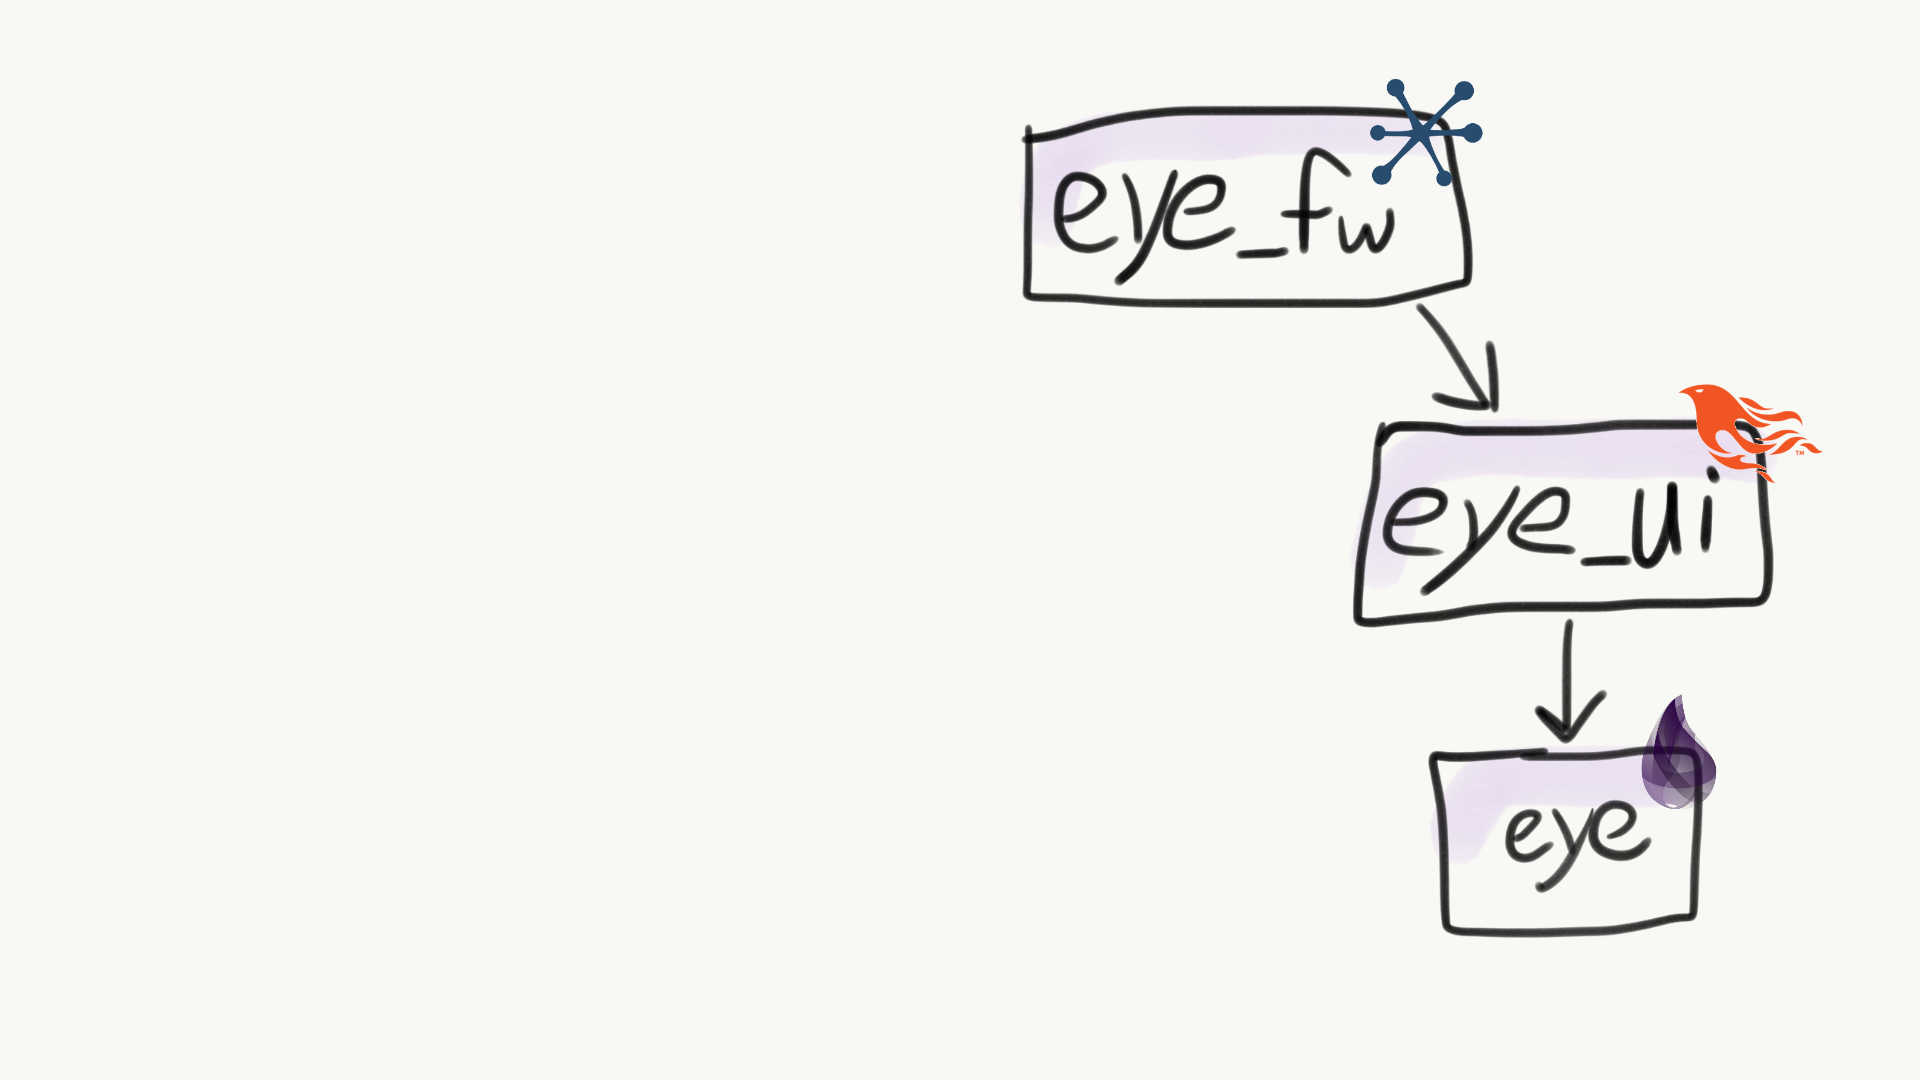 eye_fw
eye_ui
TM
eye